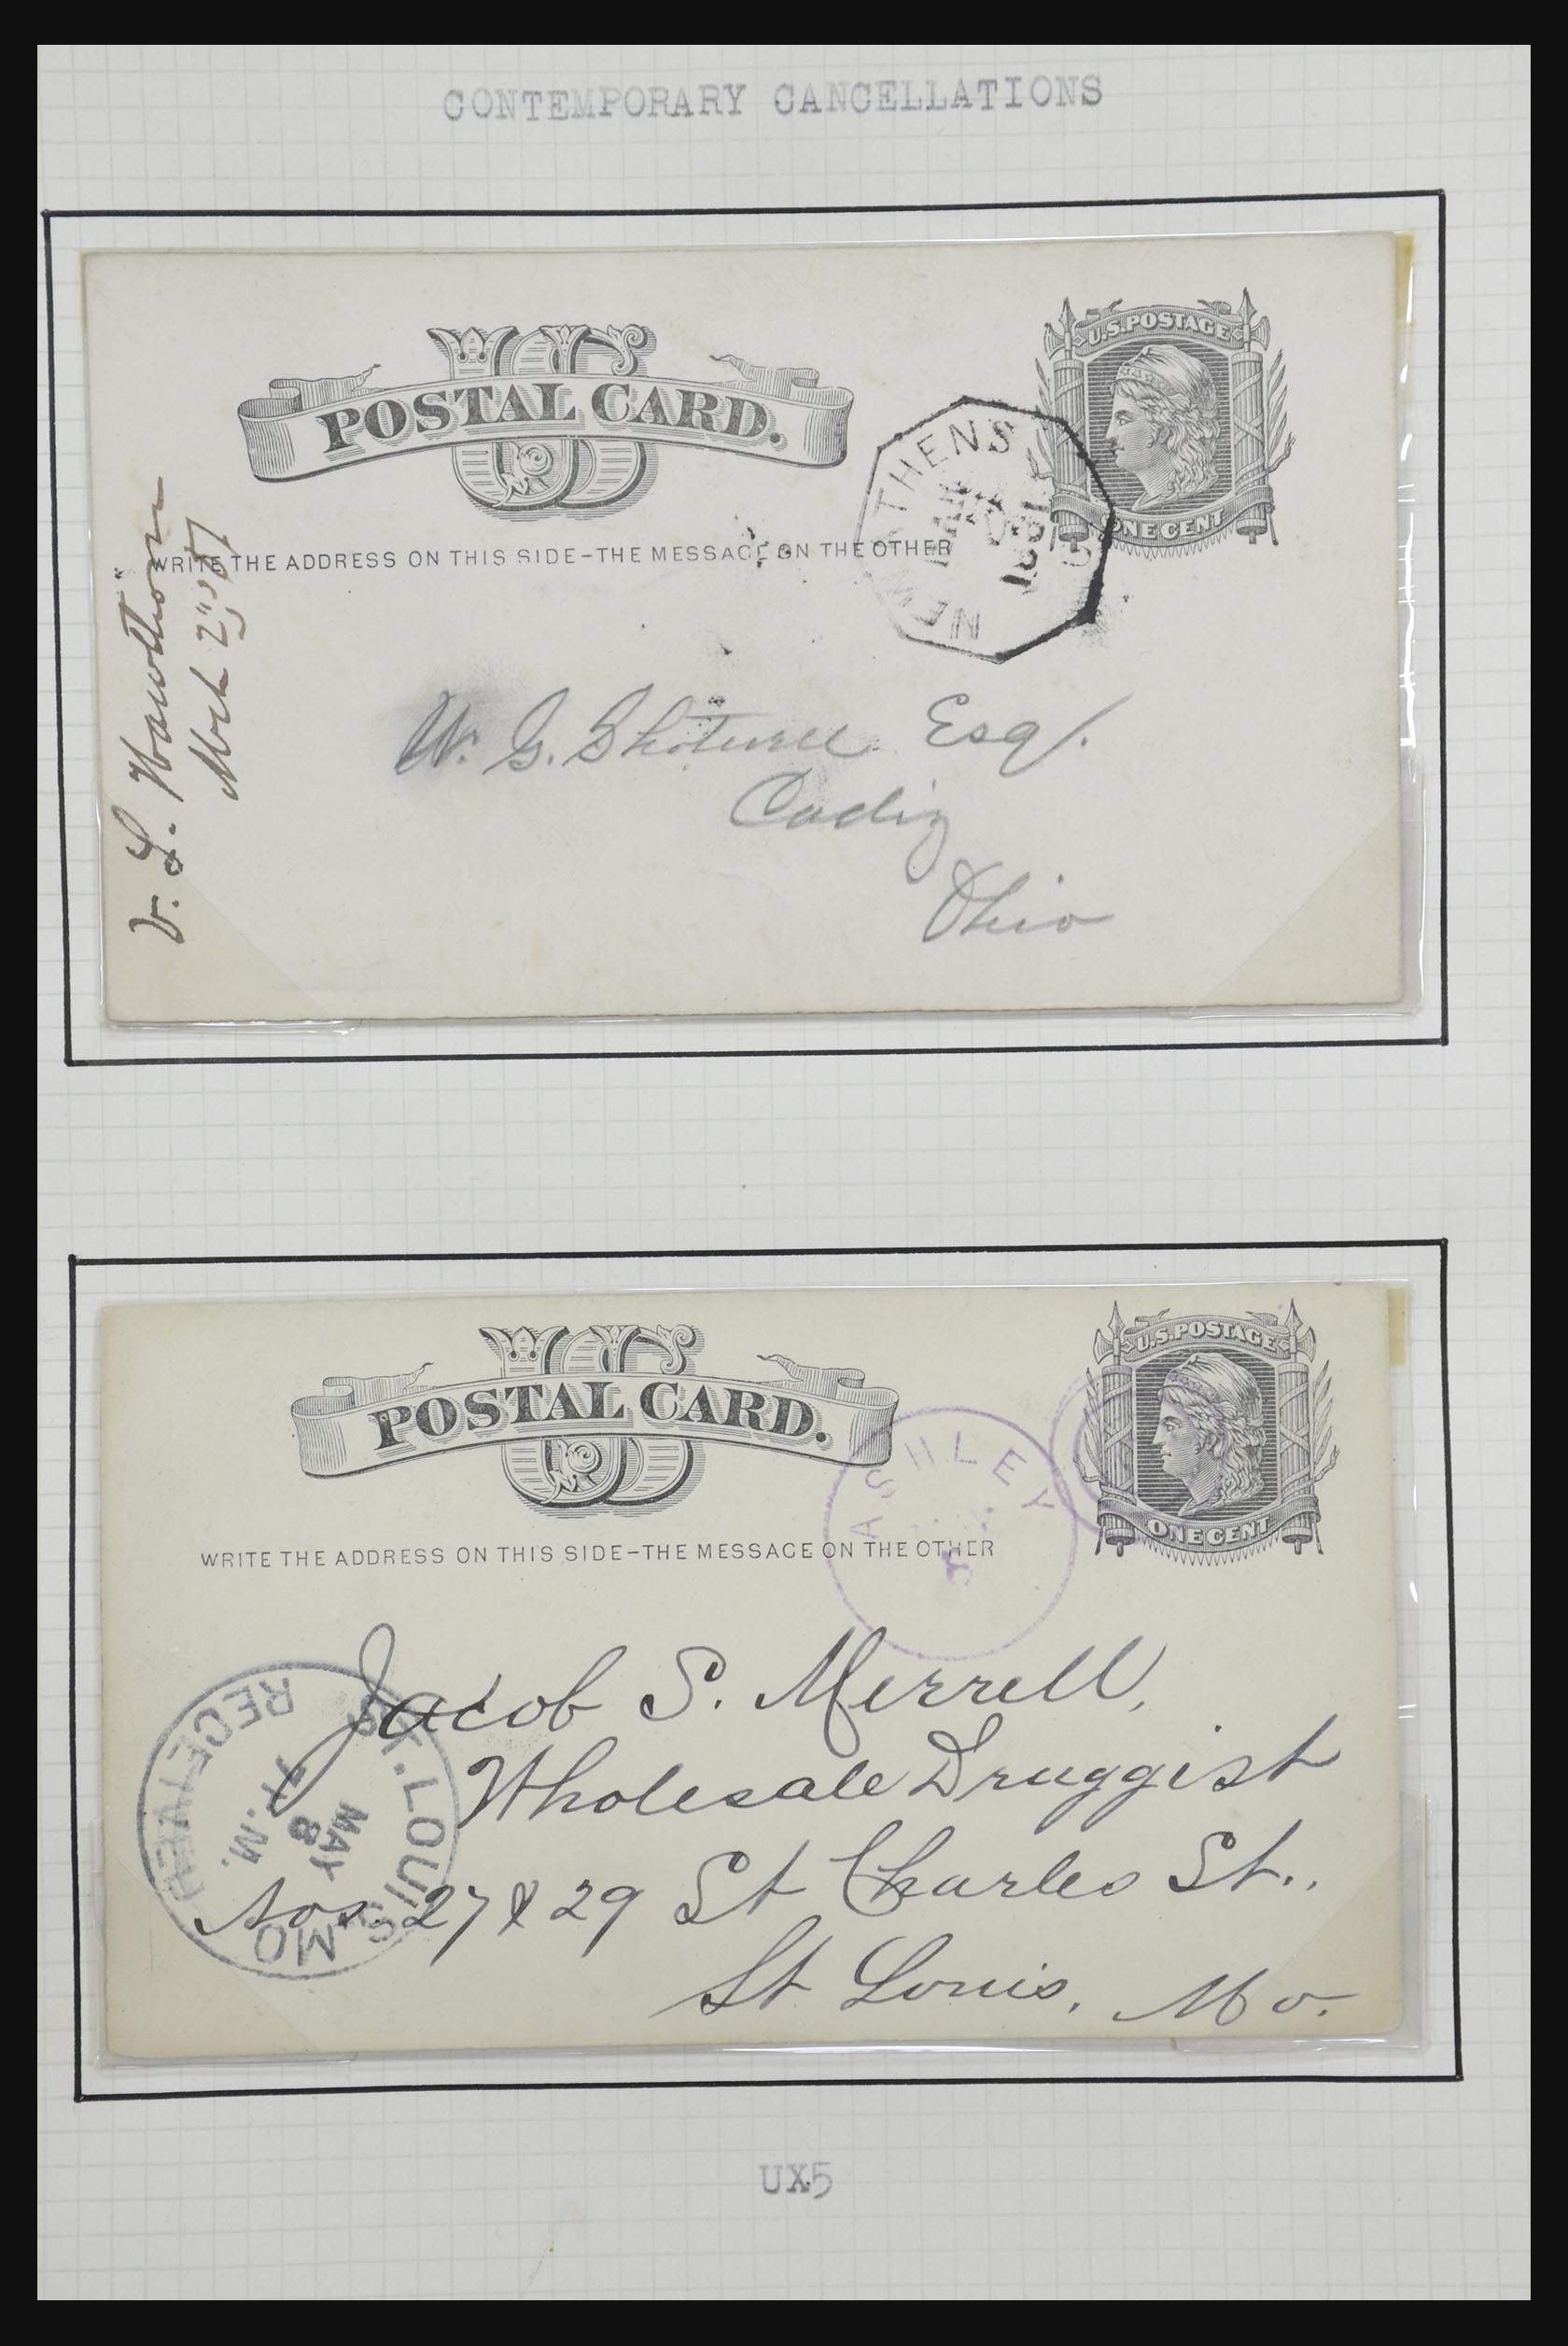 CONTEMPORARY CANCELLATIONS
U.S. POSTAGE
US
POSTAL CARD.
ONE CENT
WRITE THE ADDRESS ON THIS SIDE-THE MESSAGE ON THE OTHER
NEW ATHENS O
MAR
1881
L. Hawthorn
Mch 2"
W. G. Shotwell Esq.
Cadiz
Ohio
U.S. POSTAGE
US
POSTAL CARD.
ONE CENT
ASHLEY
WRITE THE ADDRESS ON THIS SIDE-THE MESSAGE ON THE OTHER
Jacob S. Merrell,
Wholesale Druggist
Nos. 27 & 29 St Charles St.,
St Louis, Mo.
ST. LOUIS MO
RECEIVED
MAY
8
UX5